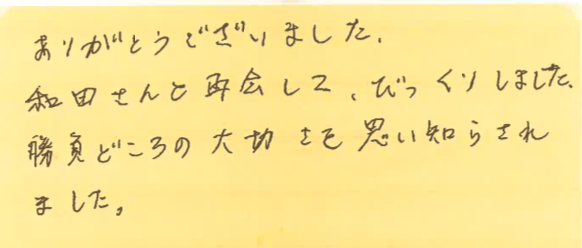 ありがとうございました.
和田さんと再会して、びっくりしました.
勝負どころの大切さを思い知らされ
ました。